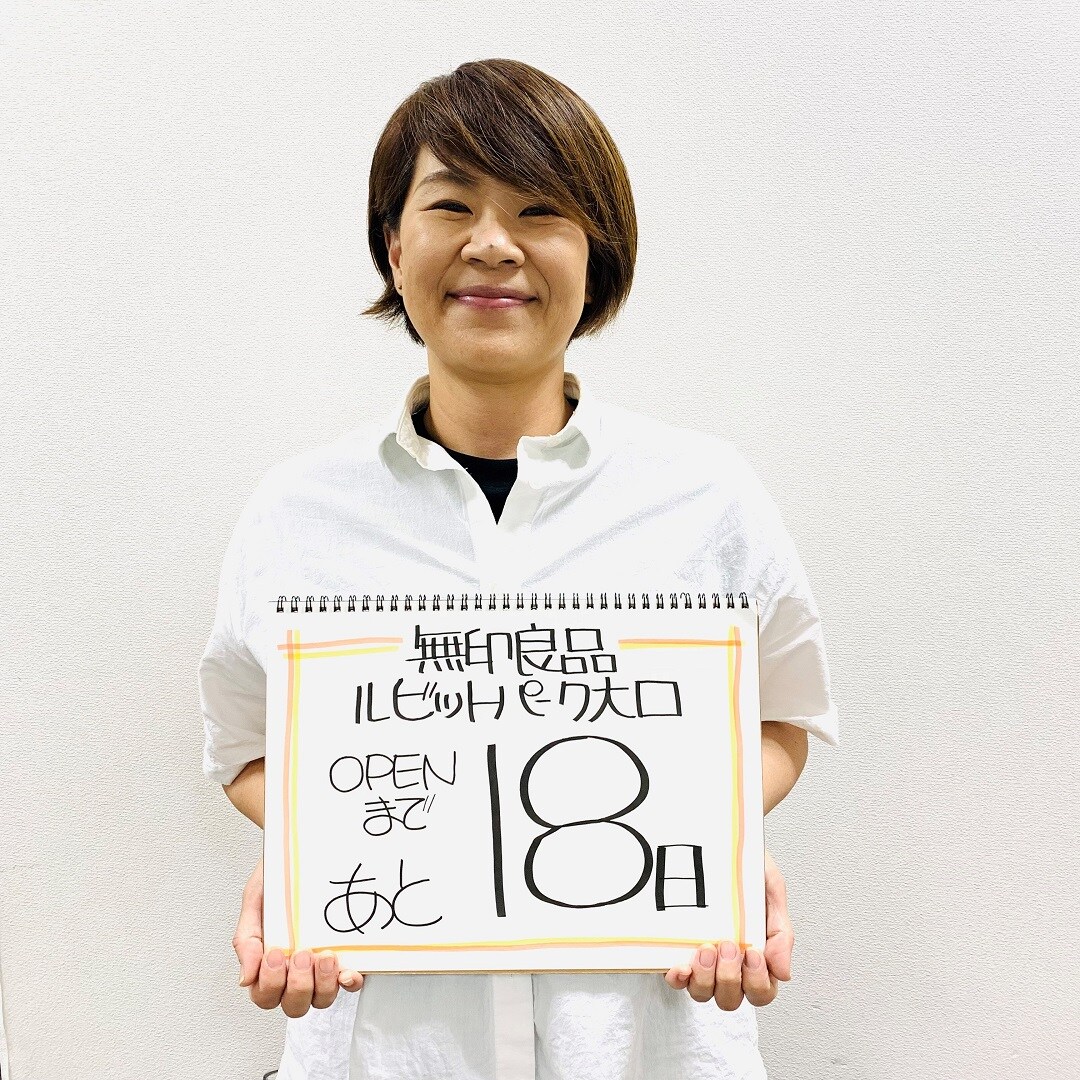 無印良品
ルビットパーク大口
OPEN
まで
あと
18日